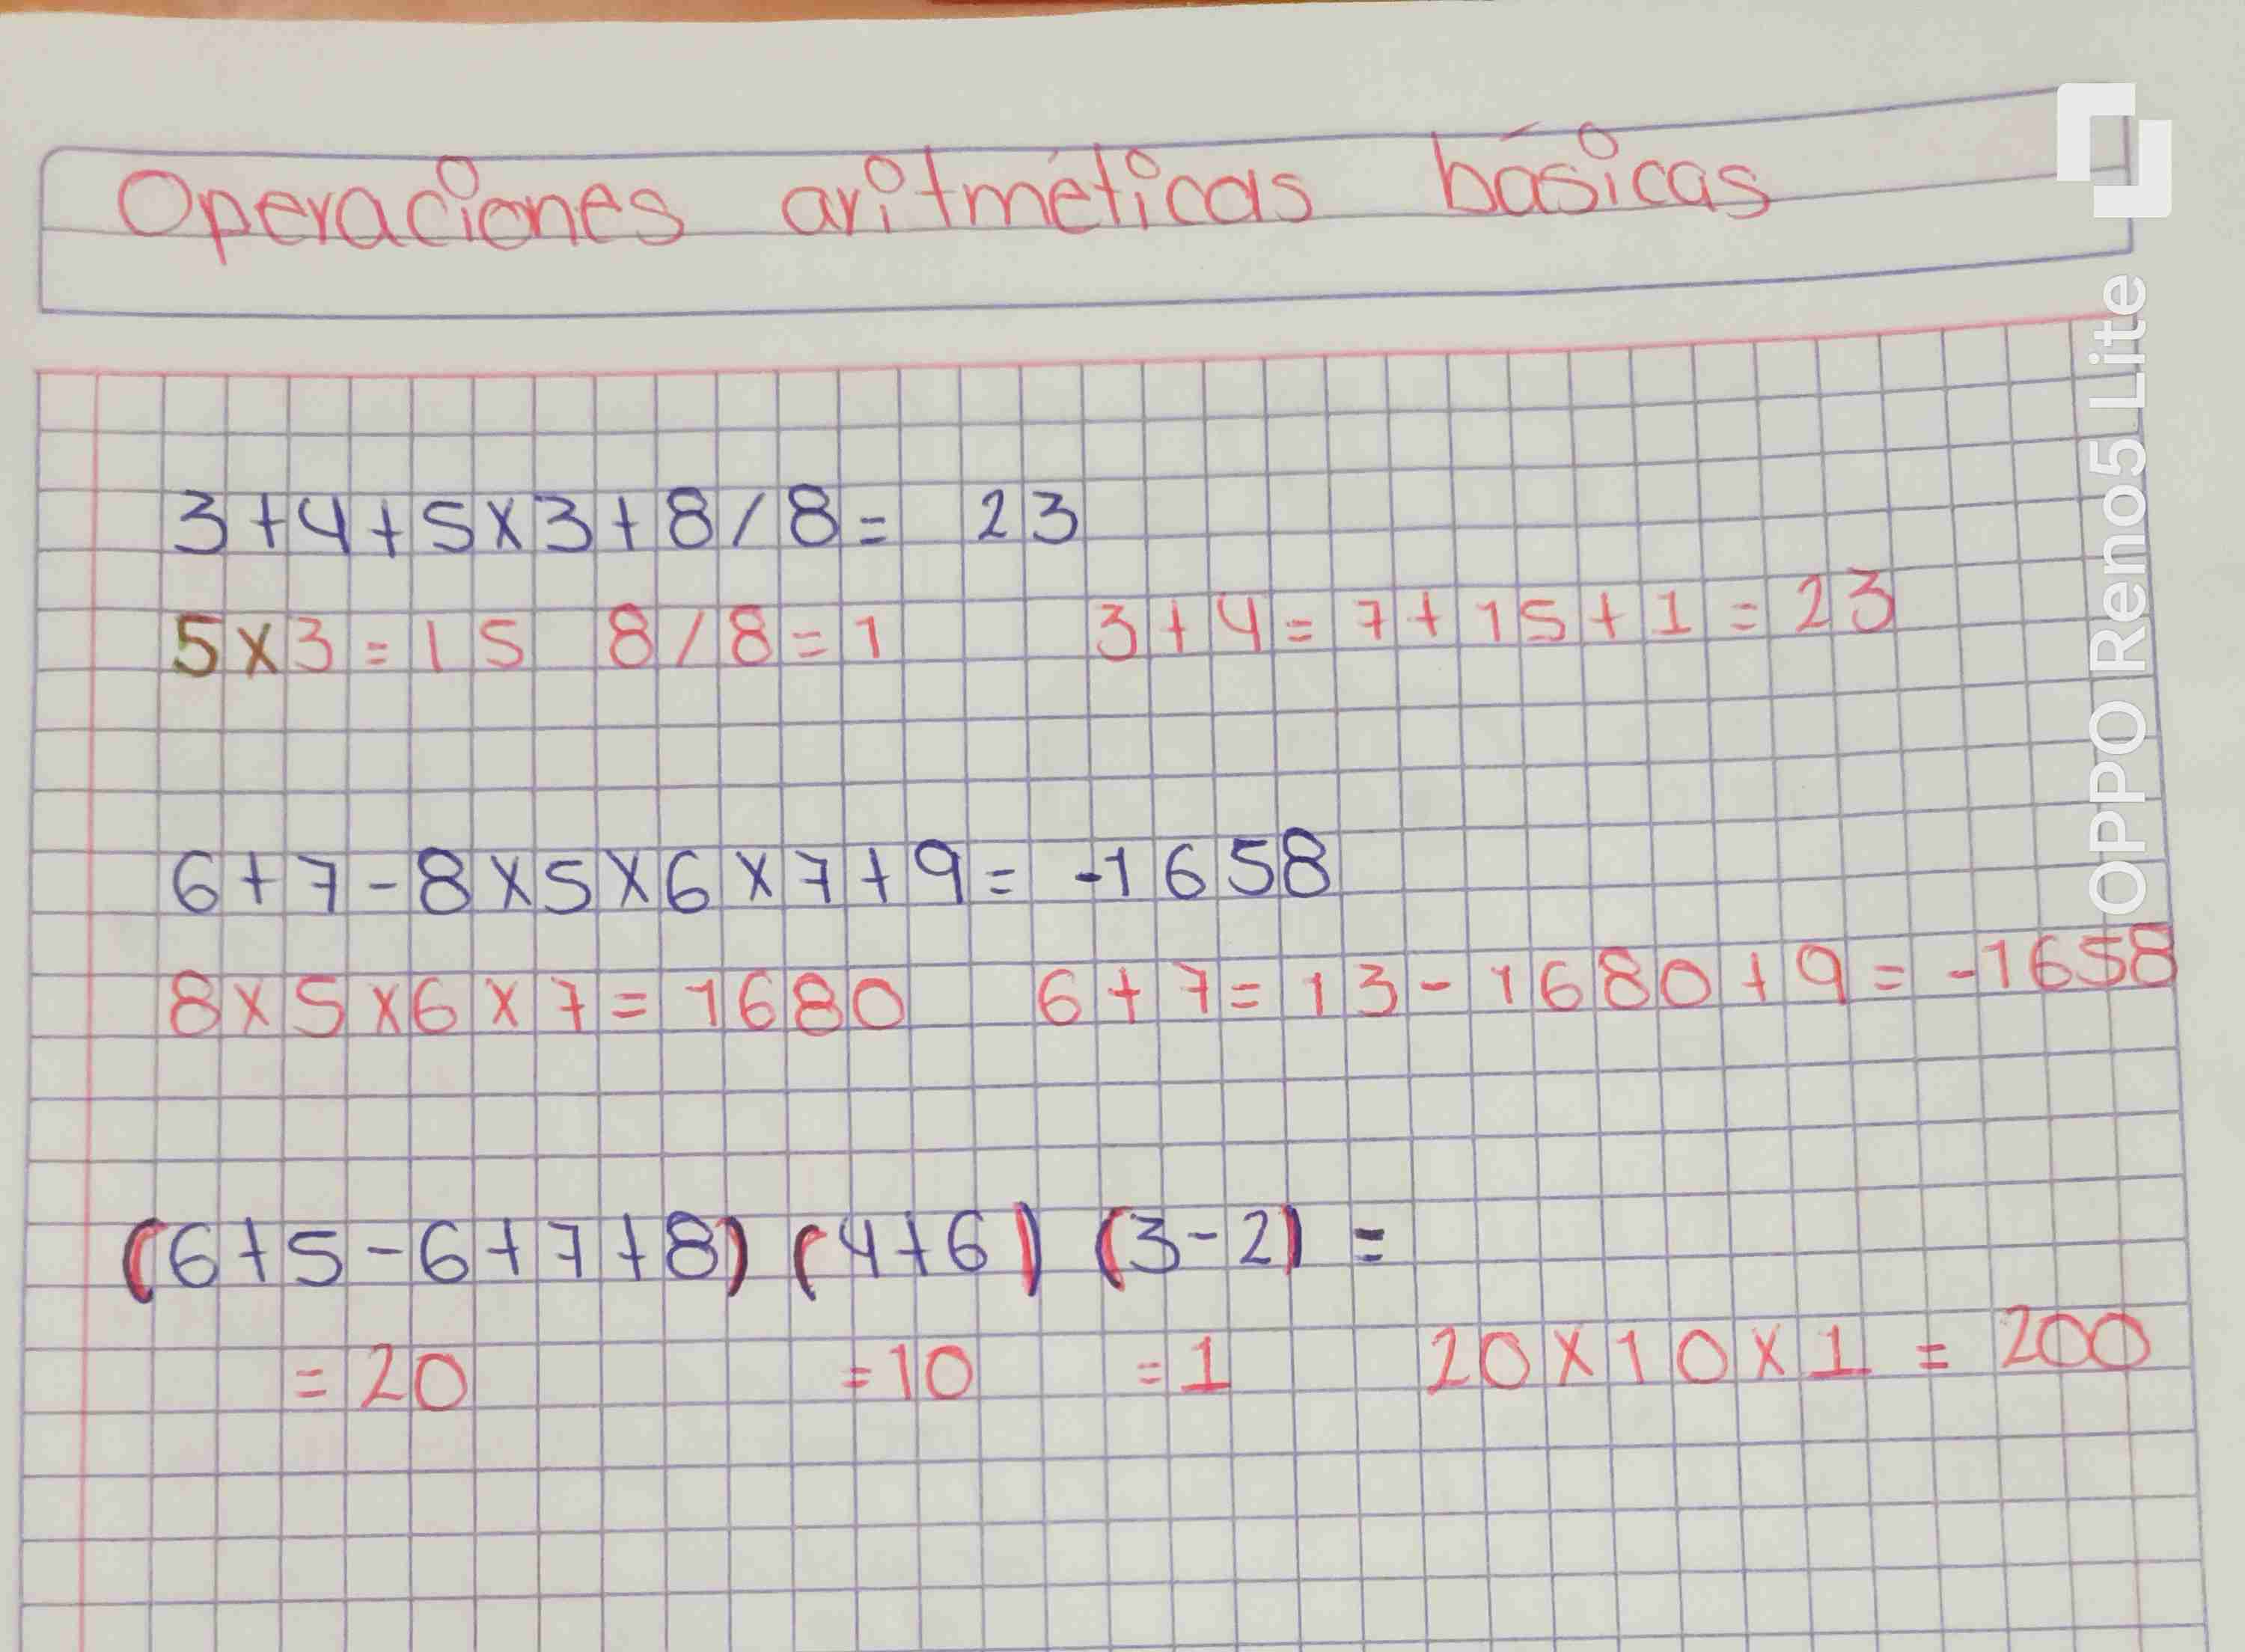 Operaciones aritméticas básicas
3+4+5x3+8/8= 23
5x3=15 8/8=1 3+4=7+15+1=23
6+7-8x5x6x7+9= -1658
8x5x6x7=1680 6+7=13-1680+9=-1658
(6+5-6+7+8) (4+6) (3-2) =
=20 =10 =1 20x10x1 = 200
OPPO Reno5 Lite